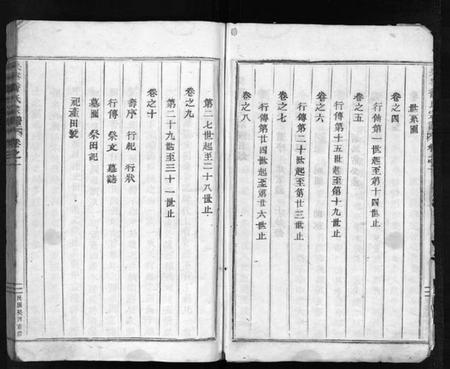 世系圖
卷之四
行傳第一世起至第十四世止
卷之五
行傳第十五世起至第十九世止
卷之六
行傳第二十世起至第廿三世止
卷之七
行傳第廿四世起至第廿六世止
卷之八
第二七世起至二十八世止
卷之九
第二十九世起至三十一世止
卷之十
壽序 行紀 行狀
行傳 祭文 墓誌
墓圖 祭田記
祀產田號
卷之十